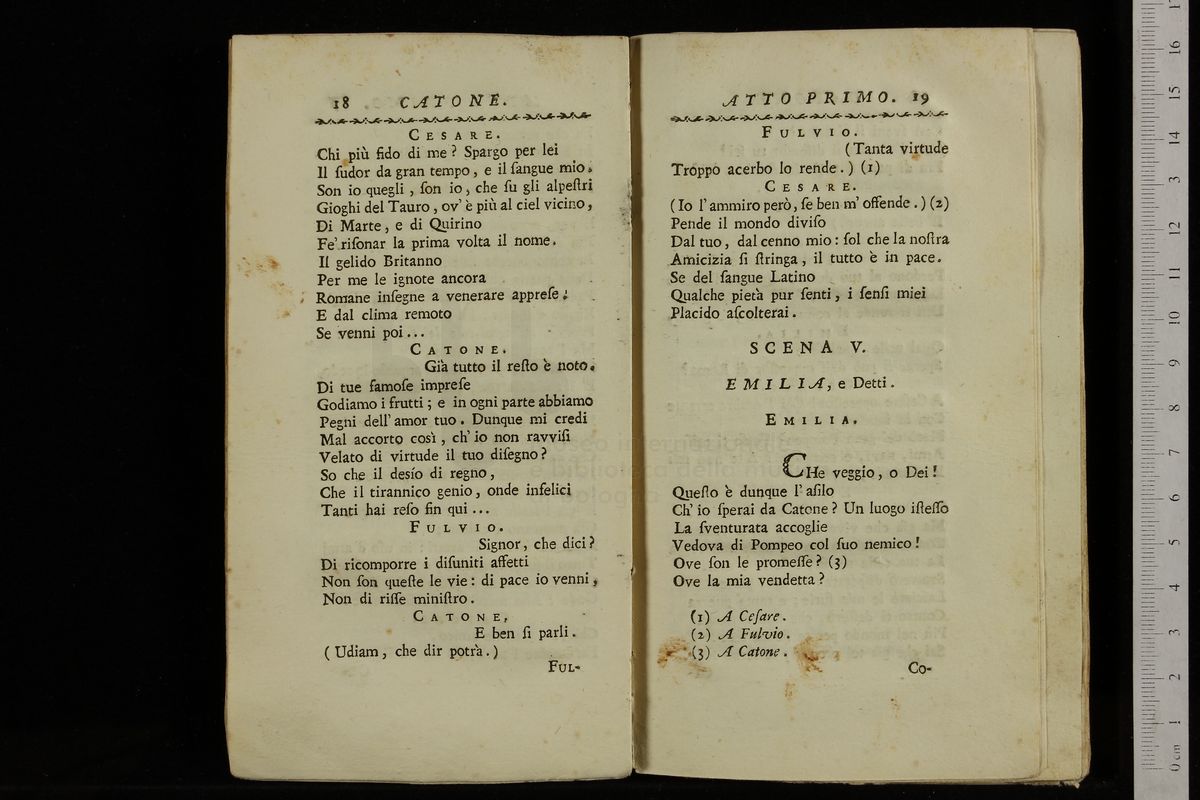 18 CATONE.
CESARE.
Chi più fido di me? Spargo per lei
Il ſudor da gran tempo, e il ſangue mio.
Son io quegli, ſon io, che ſu gli alpeſtri
Gioghi del Tauro, ov' è più al ciel vicino,
Di Marte, e di Quirino
Fe' riſonar la prima volta il nome.
Il gelido Britanno
Per me le ignote ancora
Romane inſegne a venerare appreſe:
E dal clima remoto
Se venni poi...
CATONE.
Già tutto il reſto è noto.
Di tue famoſe impreſe
Godiamo i frutti; e in ogni parte abbiamo
Pegni dell' amor tuo. Dunque mi credi
Mal accorto così, ch' io non ravviſi
Velato di virtude il tuo diſegno?
So che il desío di regno,
Che il tirannico genio, onde infelici
Tanti hai reſo fin qui...
FULVIO.
Signor, che dici?
Di ricomporre i diſuniti affetti
Non ſon queſte le vie: di pace io venni,
Non di riſſe miniſtro.
CATONE,
E ben ſi parli.
(Udiam, che dir potrà.)
FUL-
ATTO PRIMO. 19
FULVIO.
(Tanta virtude
Troppo acerbo lo rende.) (1)
CESARE.
(Io l' ammiro però, ſe ben m' offende.) (2)
Pende il mondo diviſo
Dal tuo, dal cenno mio: ſol che la noſtra
Amicizia ſi ſtringa, il tutto è in pace.
Se del ſangue Latino
Qualche pietà pur ſenti, i ſenſi miei
Placido aſcolterai.
SCENA V.
EMILIA, e Detti.
EMILIA.
CHe veggio, o Dei!
Queſto è dunque l' aſilo
Ch' io ſperai da Catone? Un luogo iſteſſo
La ſventurata accoglie
Vedova di Pompeo col ſuo nemico!
Ove ſon le promeſſe? (3)
Ove la mia vendetta?
(1) A Ceſare.
(2) A Fulvio.
(3) A Catone.
Co-
0 cm 1 2 3 4 5 6 7 8 9 10 11 12 13 14 15 16 17